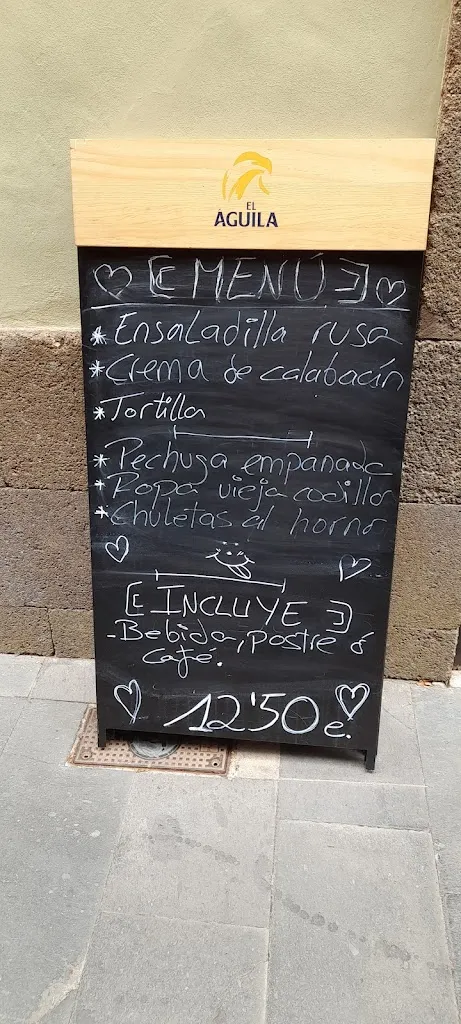 EL
ÁGUILA
[MENÚ]
* Ensaladilla rusa
* Crema de calabacín
* Tortilla
* Pechuga empanada
* Ropa vieja codillo
* Chuletas al horno
[INCLUYE]
- Bebida, postre ó
café.
12'50 e.